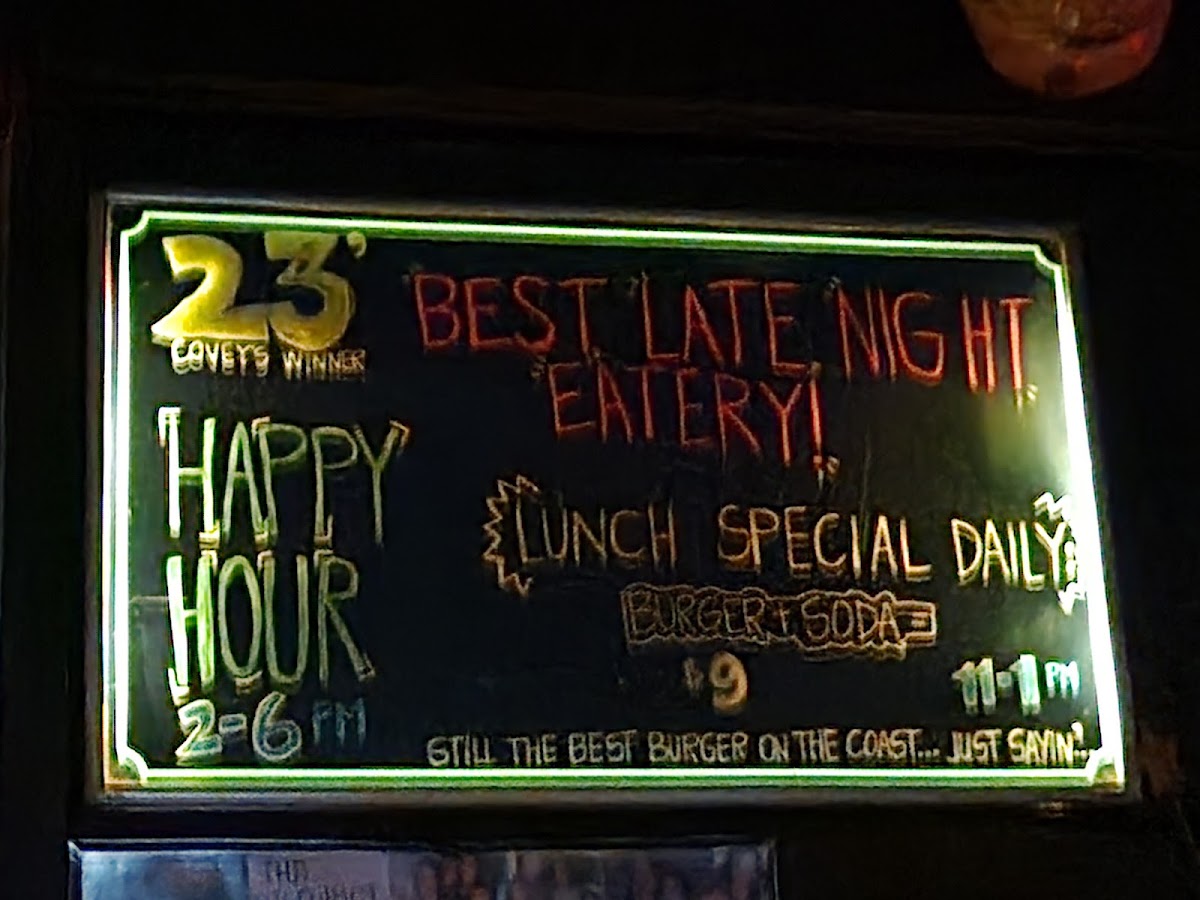 23'
COVEYS WINNER
BEST LATE NIGHT
EATERY!
HAPPY
HOUR
2-6 PM
LUNCH SPECIAL DAILY
BURGER + SODA
$9
11-1 PM
STILL THE BEST BURGER ON THE COAST... JUST SAYIN'.